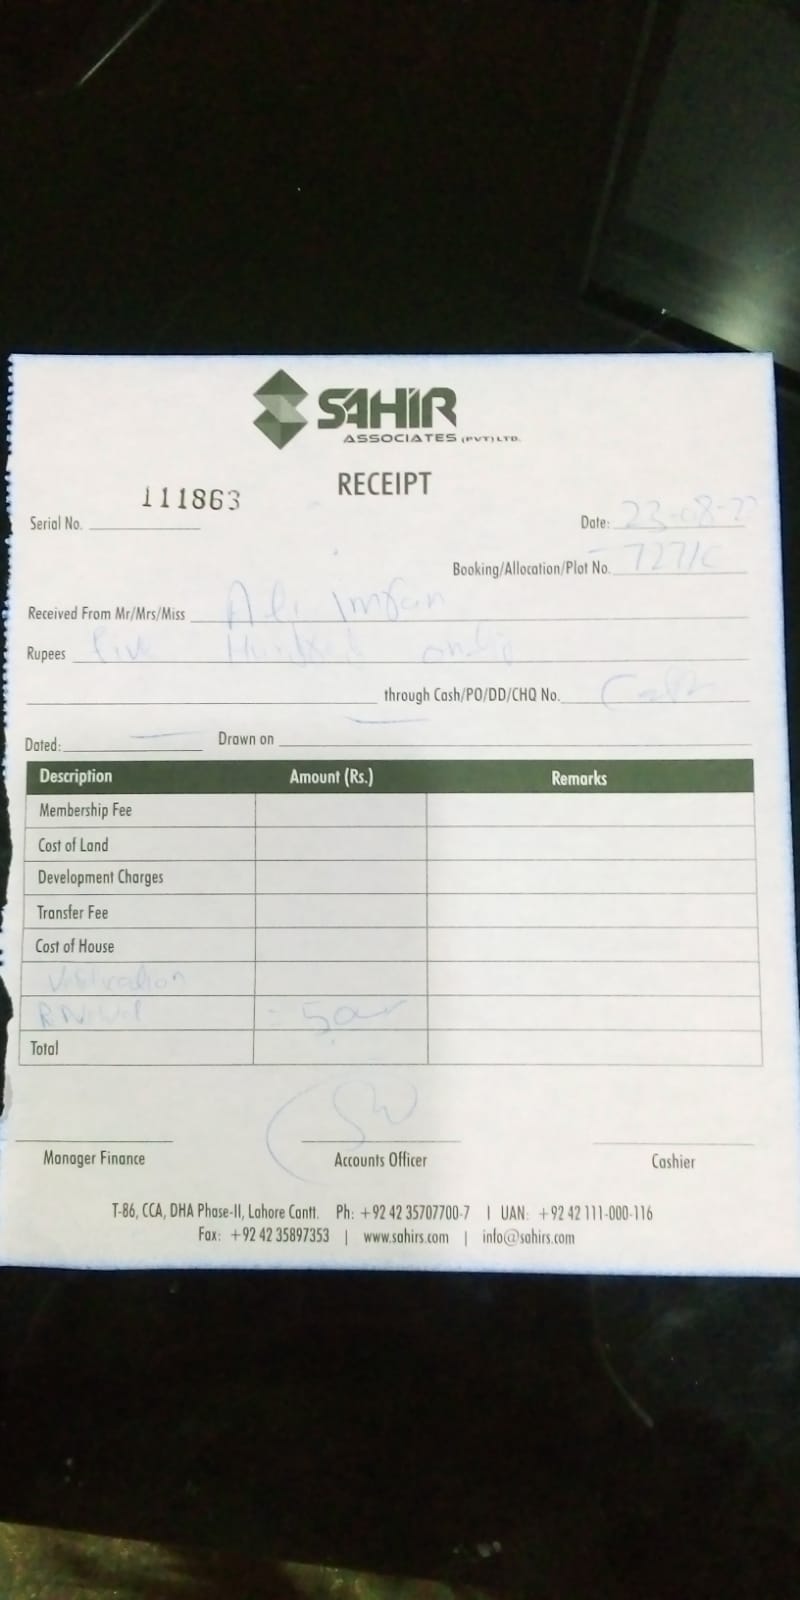 SAHIR
ASSOCIATES (PVT) LTD.
RECEIPT
Serial No. 111863
Date: 23-08-2
Booking/Allocation/Plot No. 727/C
Received From Mr/Mrs/Miss Ali Imran
Rupees five Hundred only
through Cash/PO/DD/CHQ No. Cash
Dated: Drawn on
Description Amount (Rs.) Remarks
Membership Fee
Cost of Land
Development Charges
Transfer Fee
Cost of House
Total
Manager Finance Accounts Officer Cashier
T-86, CCA, DHA Phase-II, Lahore Cantt. Ph: +92 42 35707700-7 | UAN: +92 42 111-000-116
Fax: +92 42 35897353 | www.sahirs.com | info@sahirs.com